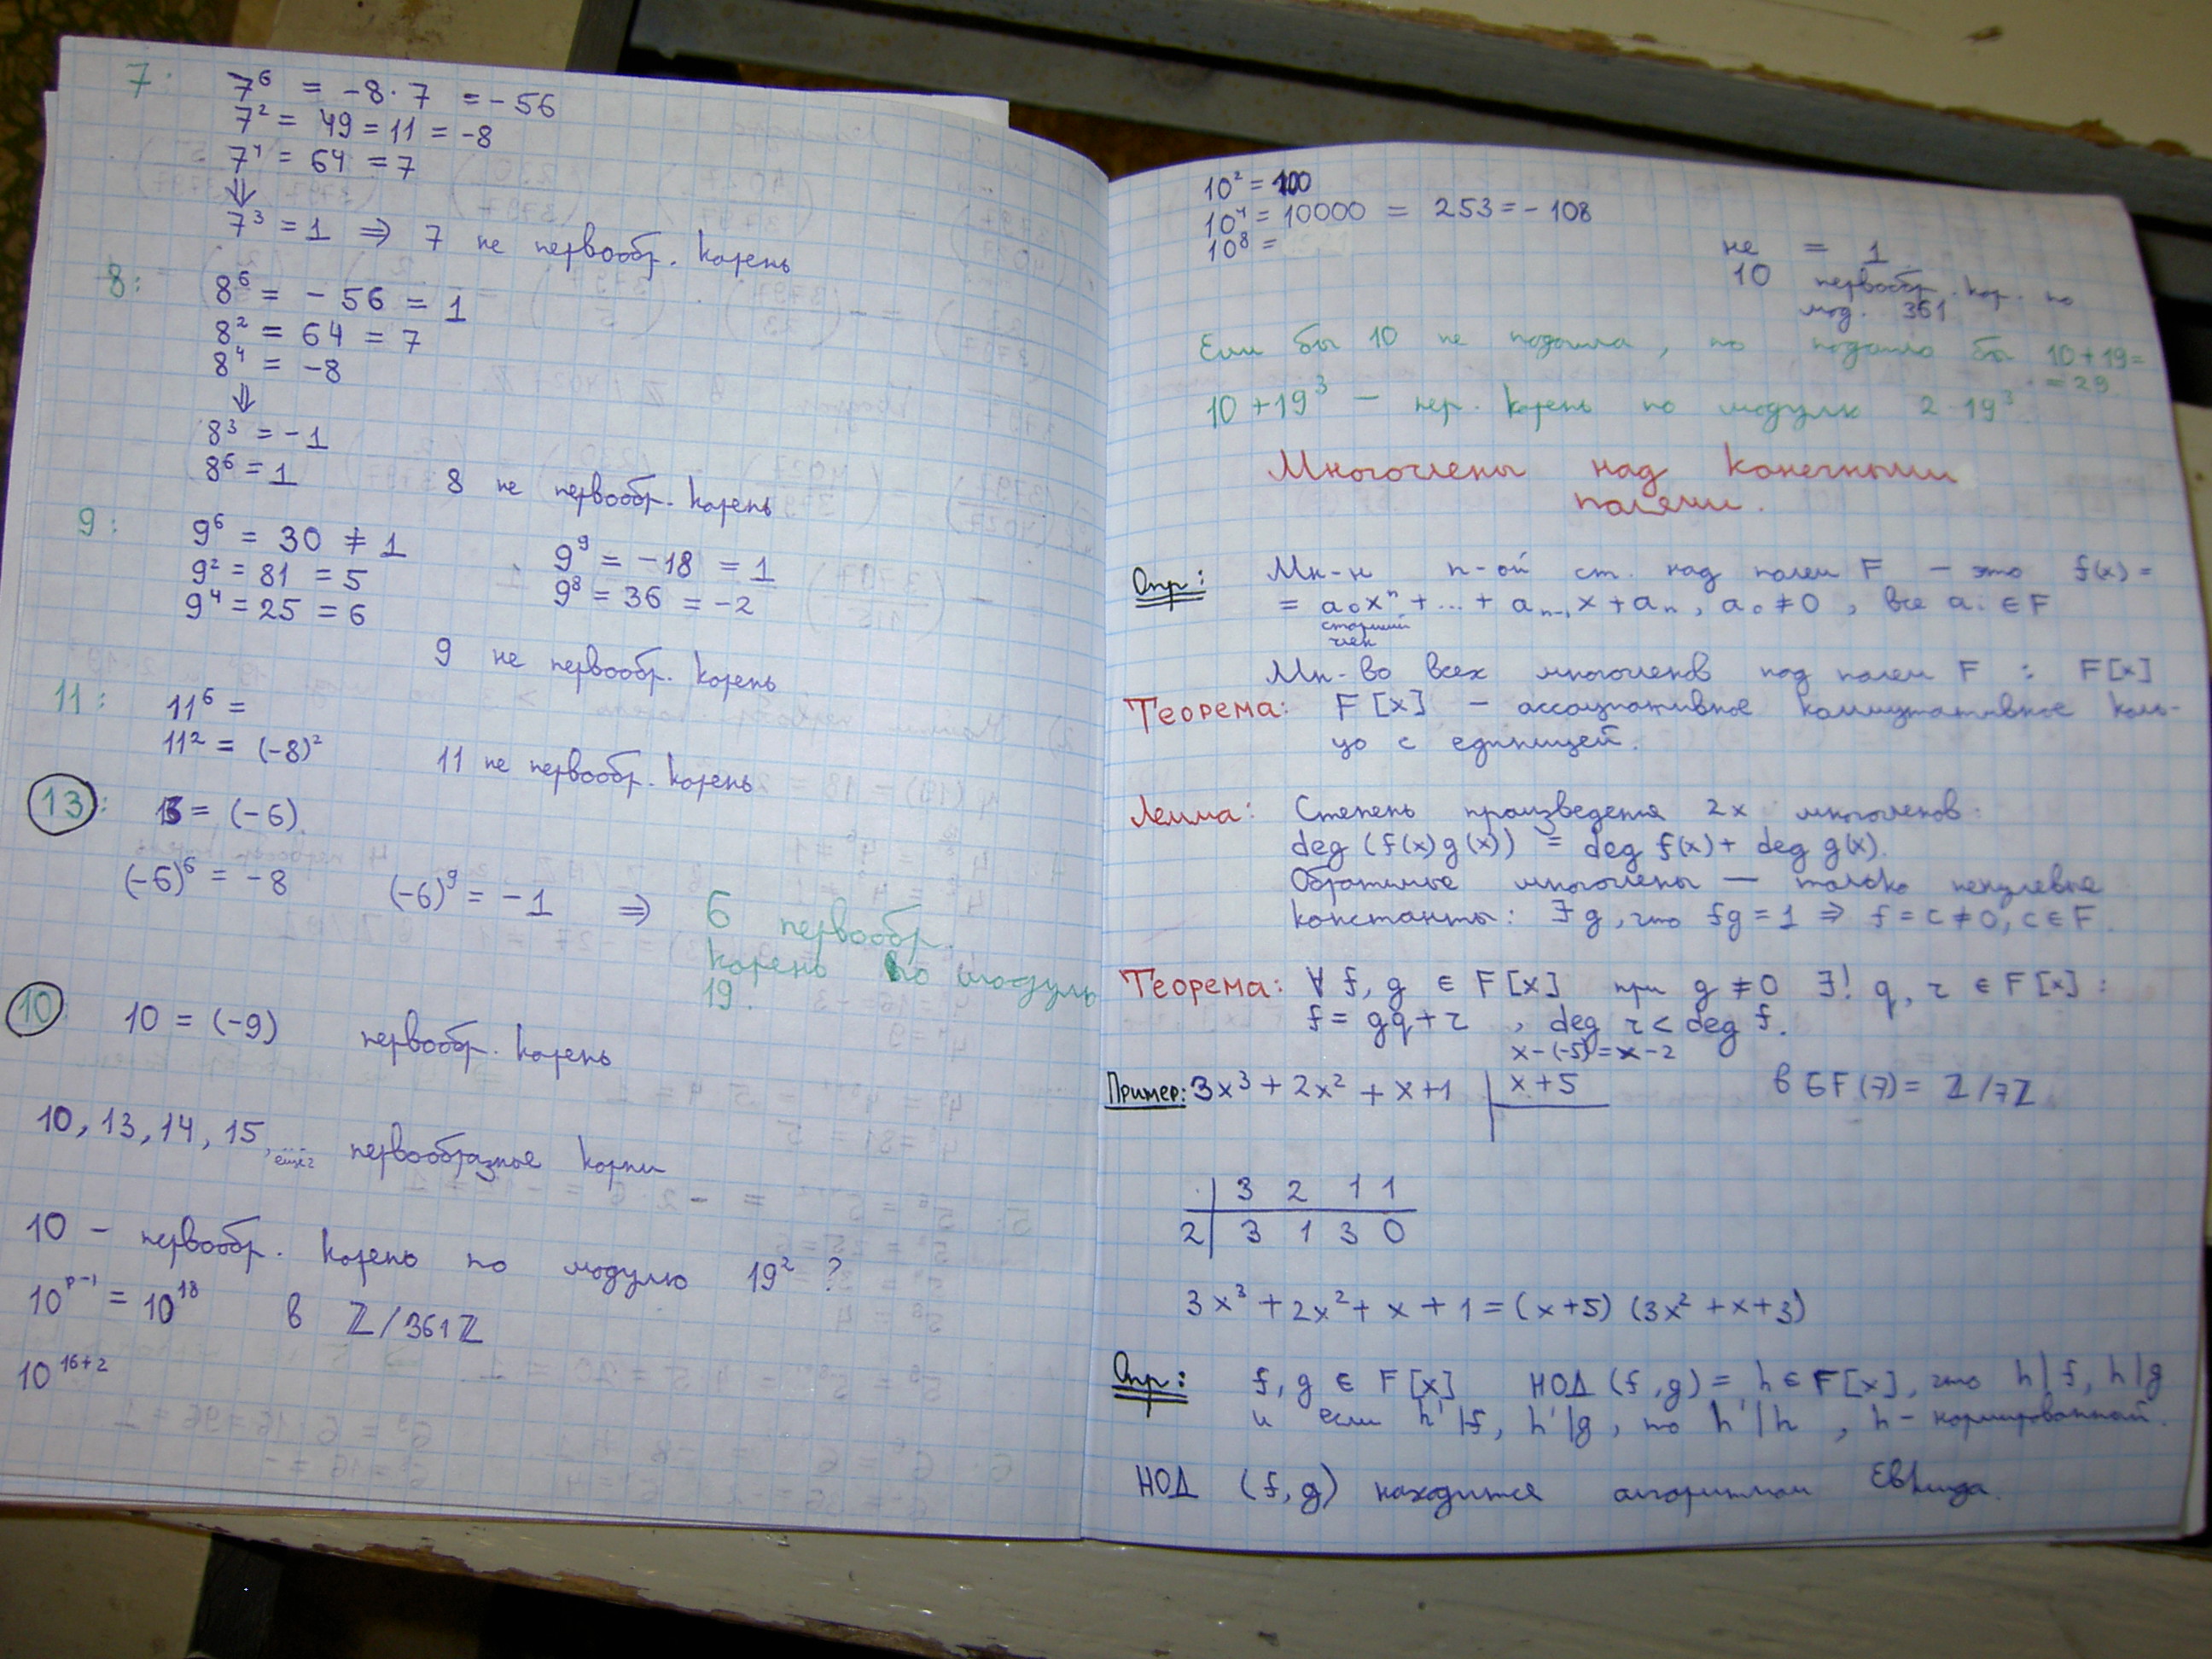 7:
7⁶ = -8·7 = -56
7² = 49 = 11 = -8
7⁴ = 64 = 7
⇓
7³ = 1 ⇒ 7 не первообр. корень
8:
8⁶ = -56 = 1
8² = 64 = 7
8⁴ = -8
⇓
8³ = -1
8⁶ = 1
8 не первообр. корень
9:
9⁶ = 30 ≠ 1
9² = 81 = 5
9⁴ = 25 = 6
9⁹ = -18 = 1
9⁸ = 36 = -2
9 не первообр. корень
11:
11⁶ =
11² = (-8)²
11 не первообр. корень
13:
13 = (-6)
(-6)⁶ = -8 (-6)⁹ = -1 ⇒ 6 первообр.
корень по модулю
19.
10
10 = (-9) первообр. корень
10, 13, 14, 15, первообразные корни
10 - первообр. корень по модулю 19² ?
10ᵖ⁻¹ = 10¹⁸ в ℤ/361ℤ
10¹⁶⁺²
10² = 100
10⁴ = 10000 = 253 = -108
10⁸ =
не = 1
10 первообр. кор. по
мод. 361
Если бы 10 не подошла, то подошло бы 10+19=
=29.
10+19³ - пер. корень по модулю 2·19³
Многочлены над конечными
полями.
Опр: Мн-н n-ой ст. над полем F - это f(x) =
= a₀xⁿ + ... + aₙ₋₁x + aₙ, a₀ ≠ 0, все aᵢ ∈ F
старший
член
Мн-во всех многочленов над полем F : F[x]
Теорема: F[x] - ассоциативное коммутативное коль-
цо с единицей.
Лемма: Степень произведения 2х многочленов:
deg (f(x)g(x)) = deg f(x) + deg g(x).
Обратимые многочлены — только ненулевые
константы: ∃ g, что fg = 1 ⇒ f = c ≠ 0, c ∈ F.
Теорема: ∀ f, g ∈ F[x] при g ≠ 0 ∃! q, r ∈ F[x] :
f = gq + r , deg r < deg f.
x-(-5) = x-2
Пример: 3x³ + 2x² + x + 1 | x+5 в GF(7) = ℤ/7ℤ
| 3 2 1 1
2 | 3 1 3 0
3x³ + 2x² + x + 1 = (x+5) (3x² + x + 3)
Опр: f, g ∈ F[x] НОД (f, g) = h ∈ F[x], что h|f, h|g
и если h'|f, h'|g, то h'|h , h - нормированный.
НОД (f, g) находится алгоритмом Евклида.